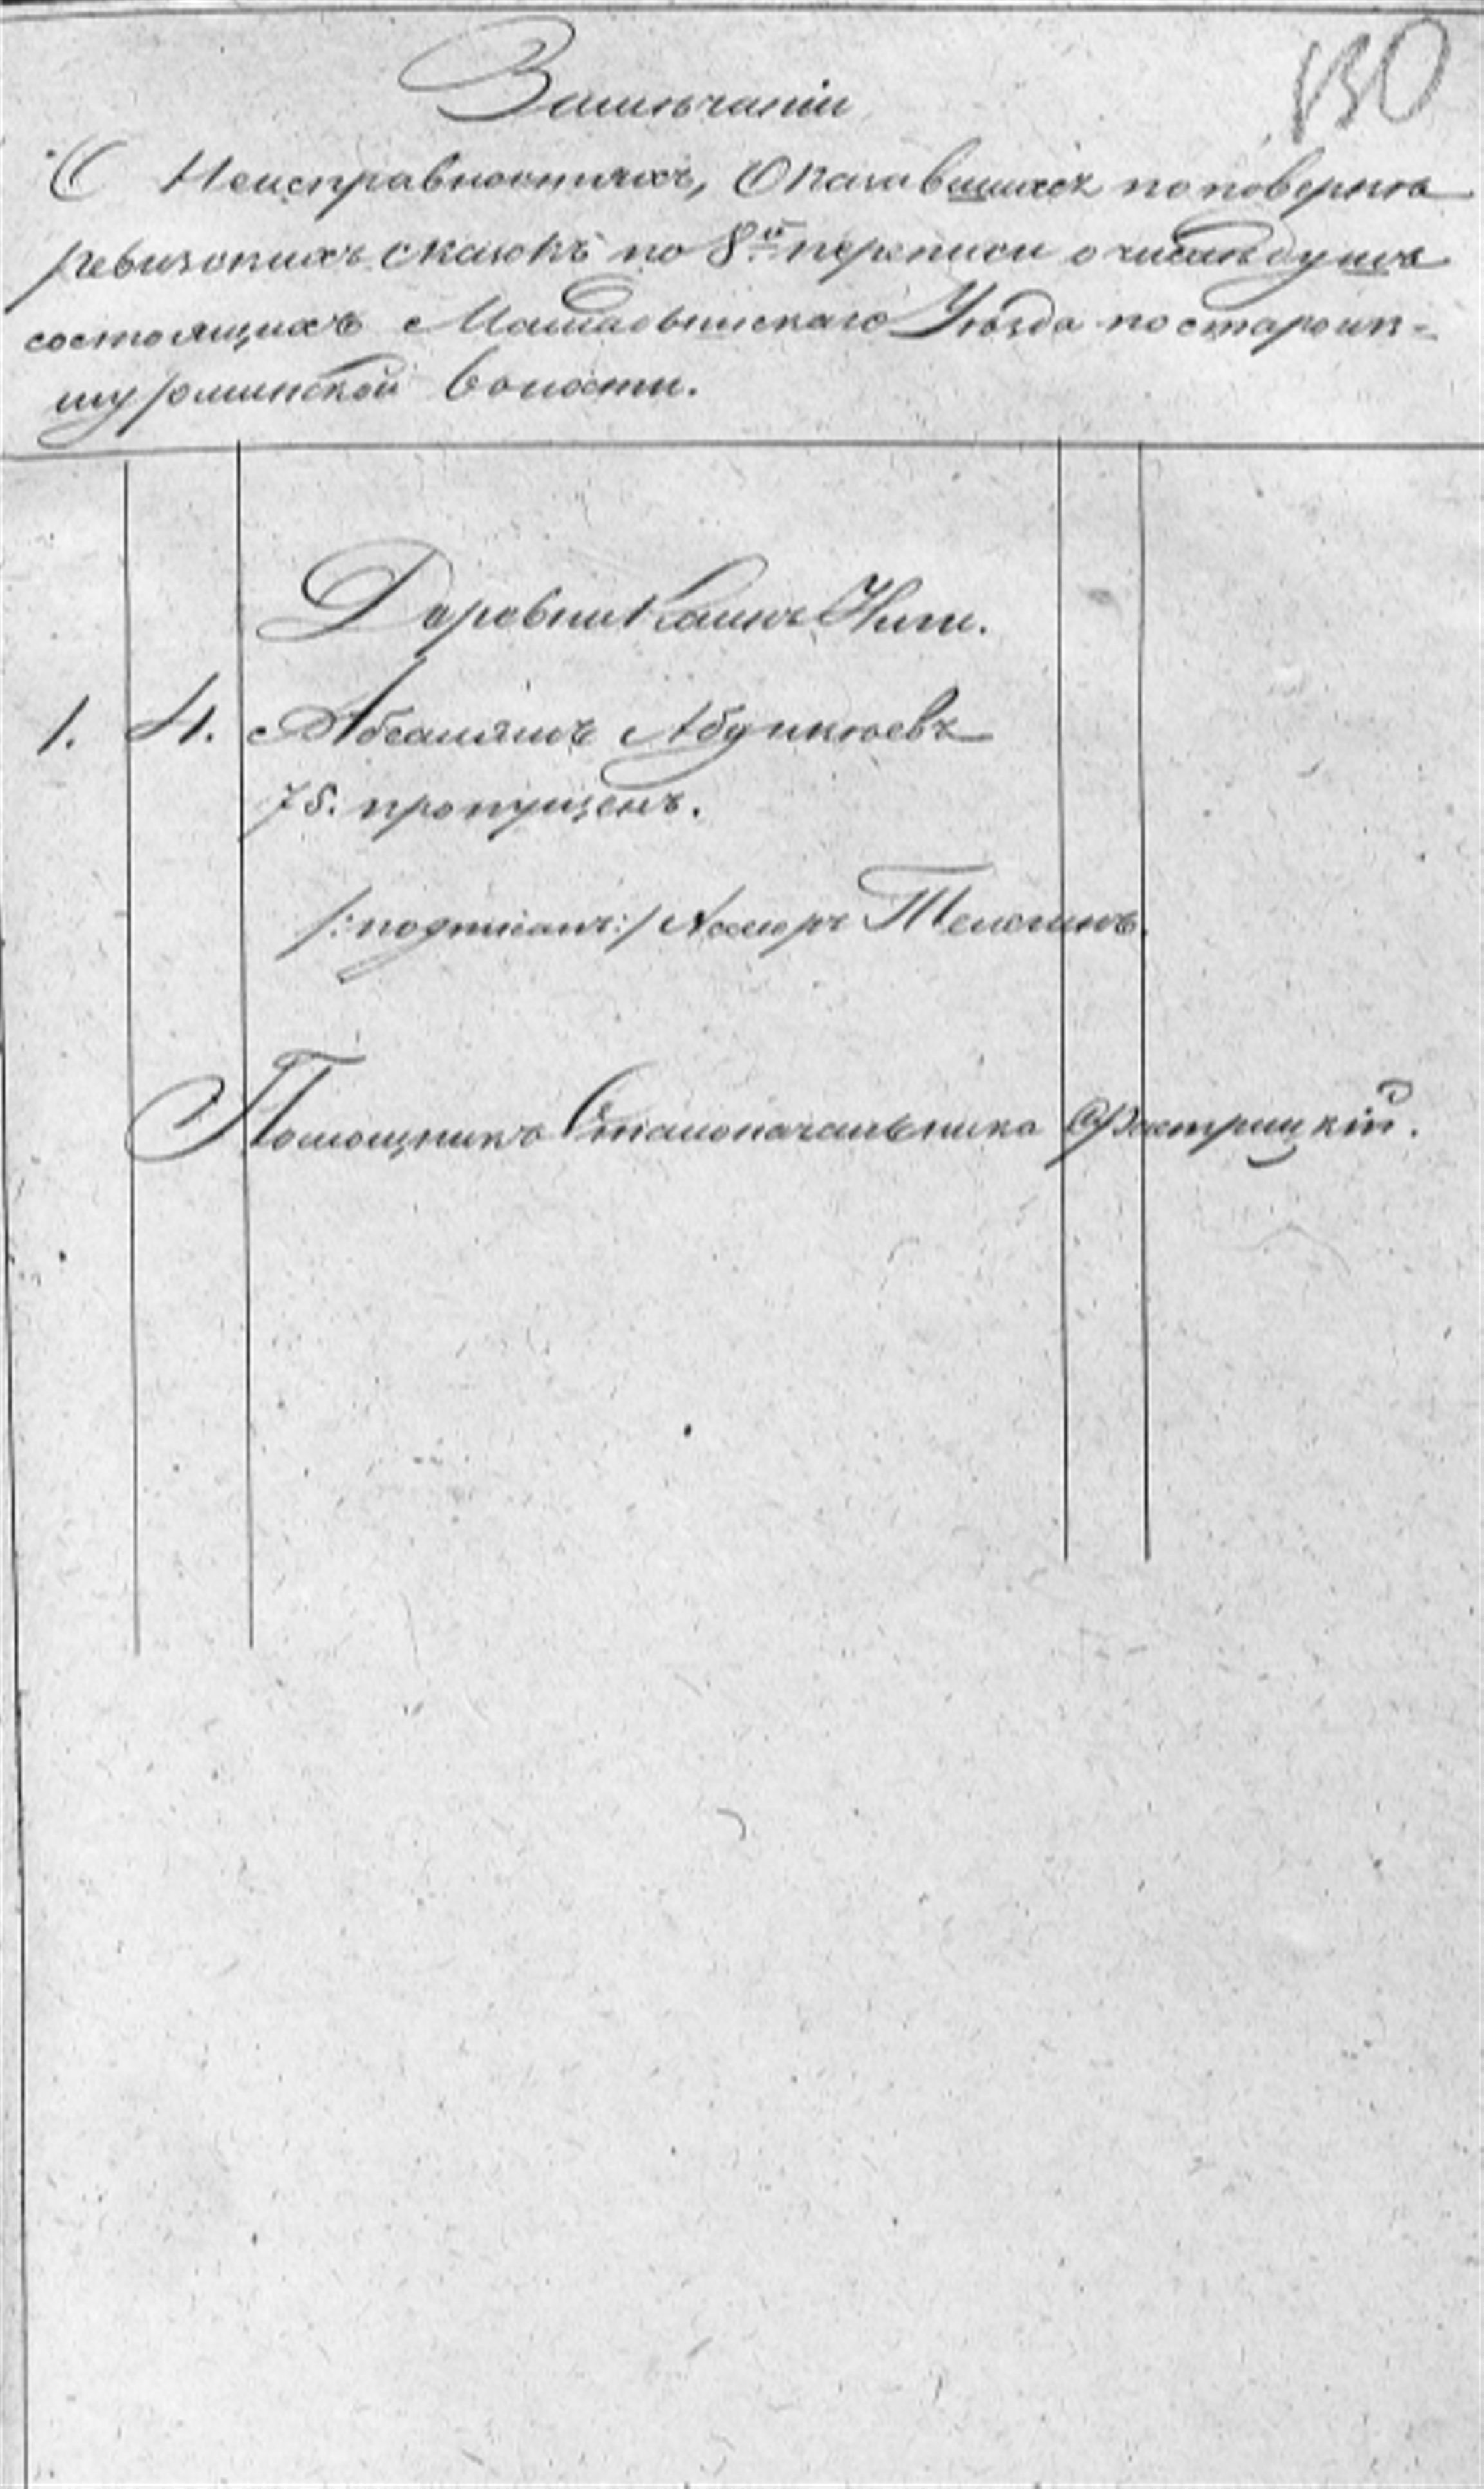 130
Замѣчаніи
О Неисправностяхъ, Оказавшихся по повѣркѣ
ревизскихъ сказокъ по 8й переписи о числѣ душъ
состоящихъ Мамадышскаго Уѣзда по старой ик=
шурминской волости.
Деревни
1. 4. Абсалямъ
75. пропущенъ.
/:подписалъ:/ Асесоръ Телегинъ.
Помощникъ Столоначальника